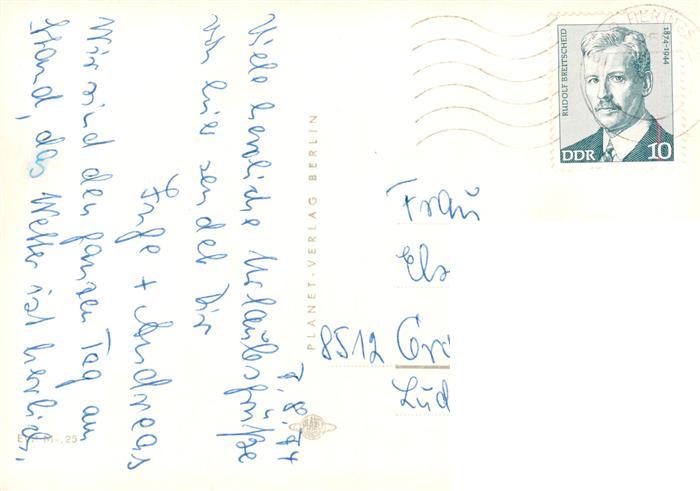 7.8.74
Viele herzliche Urlaubsgrüße
von hier sendet Dir
Inge + Andreas
Wir sind den ganzen Tag am
Strand, das Wetter ist herrlich.
PLANET-VERLAG BERLIN
RUDOLF BREITSCHEID
1874-1944
DDR 10
Frau
Els
8512 Grä
Lud